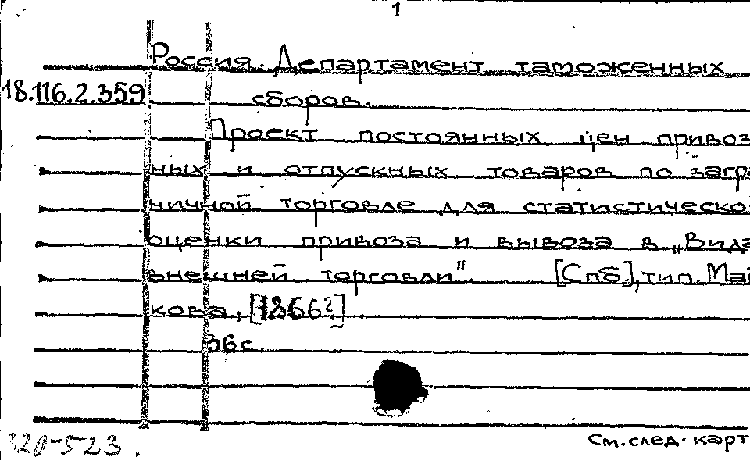 1
Россия. Департамент таможенных
18.116.2.359 сборов.
Проект постоянных цен привоз
ных и отпускных товаров по загра
ничной торговле для статистическо
оценки привоза и вывоза в „Вида
внешней торговли". [Спб.], тип. Май
кова, [1866?].
36 с.
См. след. карт